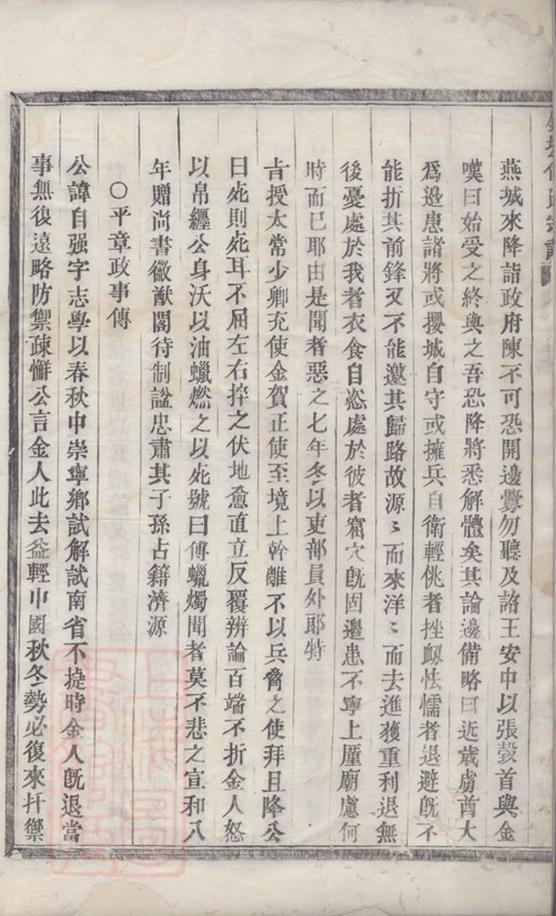 燕城來降詣政府陳不可恐開邊釁勿聽及詻王安中以張瑴首與金
嘆曰始受之終與之吾恐降將悉解體矣其論邊備略曰近歲虜酋大
爲邊患諸將或擾城自守或擁兵自衛輕佻者挫衂怯懦者退避旣不
能折其前鋒又不能邀其歸路故源〻而來洋〻而去進獲重利退無
後憂處於我者衣食自恣處於彼者窟穴旣固邊患不寧上厪廟慮何
時而已耶由是聞者惡之七年冬以吏部員外耶特
旨授太常少卿充使金賀正使至境上幹離不以兵脅之使拜且降公
曰死則死耳不屈左右捽之伏地愈直立反覆辨論百端不折金人怒
以帛纏公身沃以油蠟燃之以死號曰傅蠟燭聞者莫不悲之宣和八
年贈尚書徽猷閣待制諡忠肅其子孫占籍濟源
〇平章政事傳
公諱自强字志學以春秋中崇寧鄉試解試南省不㨗時金人旣退當
事無復遠略防禦疎懈公言金人此去益輕中國秋冬勢必復來扞禦